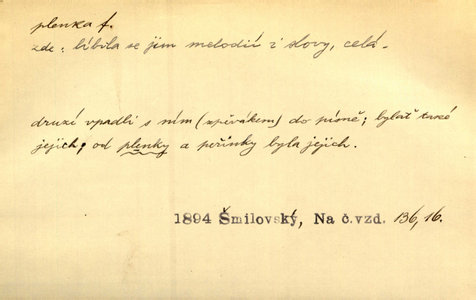 plenka f.
zde: líbila se jim melodií i slovy, celá.
druzí vpadli s ním (zpěvákem) do písně; bylať také
jejich; od plenky a peřinky byla jejich.
1894 Šmilovský, Na č.vzd. 136,16.